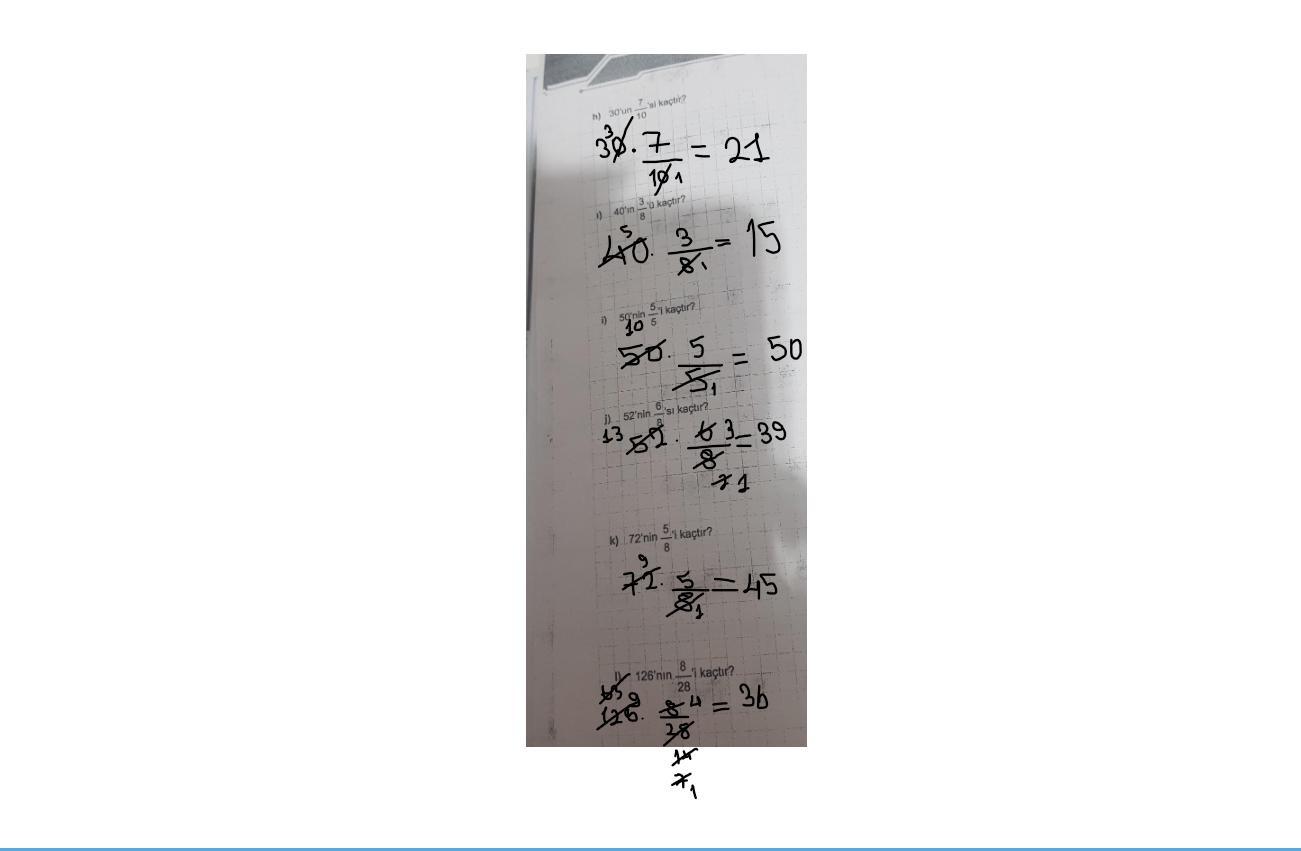 h) 30'un 7/10 'si kaçtır?
3
30 . 7/10 1 = 21
ı) 40'ın 3/8 'ü kaçtır?
5
40 . 3/8 1 = 15
i) 50'nin 5/5 'i kaçtır?
10
50 . 5/5 1 = 50
j) 52'nin 6/8 'sı kaçtır?
13 52 . 6/8 3 = 39
2 1
k) 72'nin 5/8 'i kaçtır?
9
72 . 5/8 1 = 45
l) 126'nın 8/28 'i kaçtır?
63 9
126 . 8/28 4 = 36
14
7 1